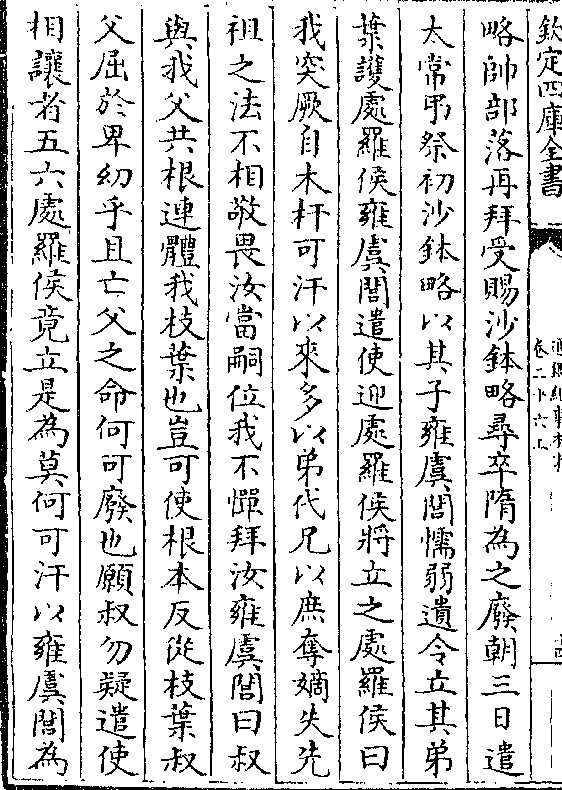 欽定四庫全書
卷二十六上
略帥部落再拜受賜沙鉢略尋卒隋為之廢朝三日遣
太常弔祭初沙鉢略以其子雍虞閭懦弱遺令立其弟
葉護處羅侯雍虞閭遣使迎處羅侯將立之處羅侯曰
我突厥自木杆可汗以來多以弟代兄以庶奪嫡失先
祖之法不相敬畏汝當嗣位我不憚拜汝雍虞閭曰叔
與我父共根連體我枝葉也豈可使根本反從枝葉叔
父屈於卑幼乎且亡父之命何可廢也願叔勿疑遣使
相讓者五六處羅侯竟立是為莫何可汗以雍虞閭為